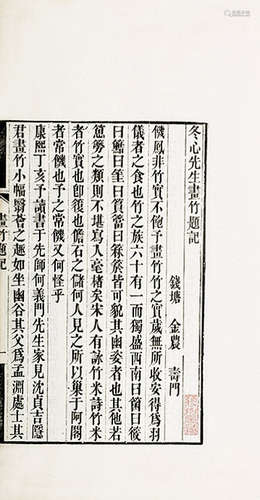 冬心先生畫竹題記
錢塘 金農 壽門
饑鳳非竹實不飽予畫竹竹之實歲無所收安得爲羽
儀者之食也竹之族六十有一而獨盛西南曰䈽曰
曰 曰䇞曰篔簹曰 皆可貢其幽姿者也其他若
簜勞之類則不堪寫入毫楮矣宋人有詠竹米詩竹米
者竹實也卽䈚也儋石之儲何人見之所以巢于阿閣
者常饑也予之常饑又何怪乎
康熙丁亥予讀書于先師何義門先生家見沈貞吉隱
君畫竹小幅翳蒼之趣如坐幽谷其父爲孟淵處士其
畫竹題記
一